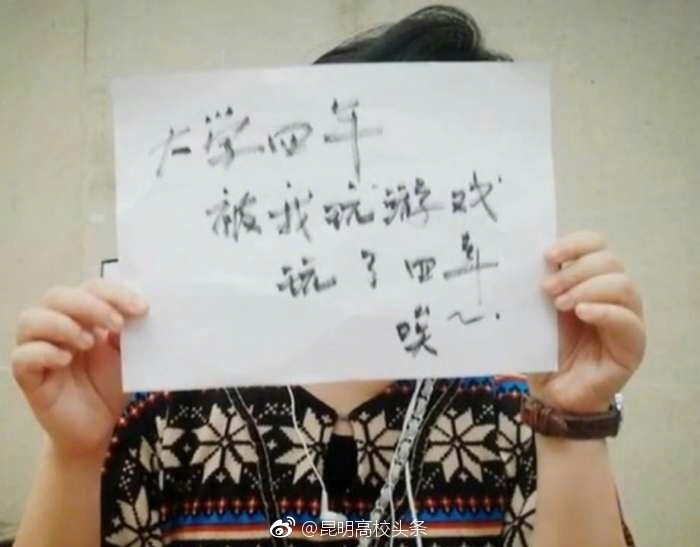 大学四年
被我玩游戏
玩了四年
唉~.
@昆明高校头条